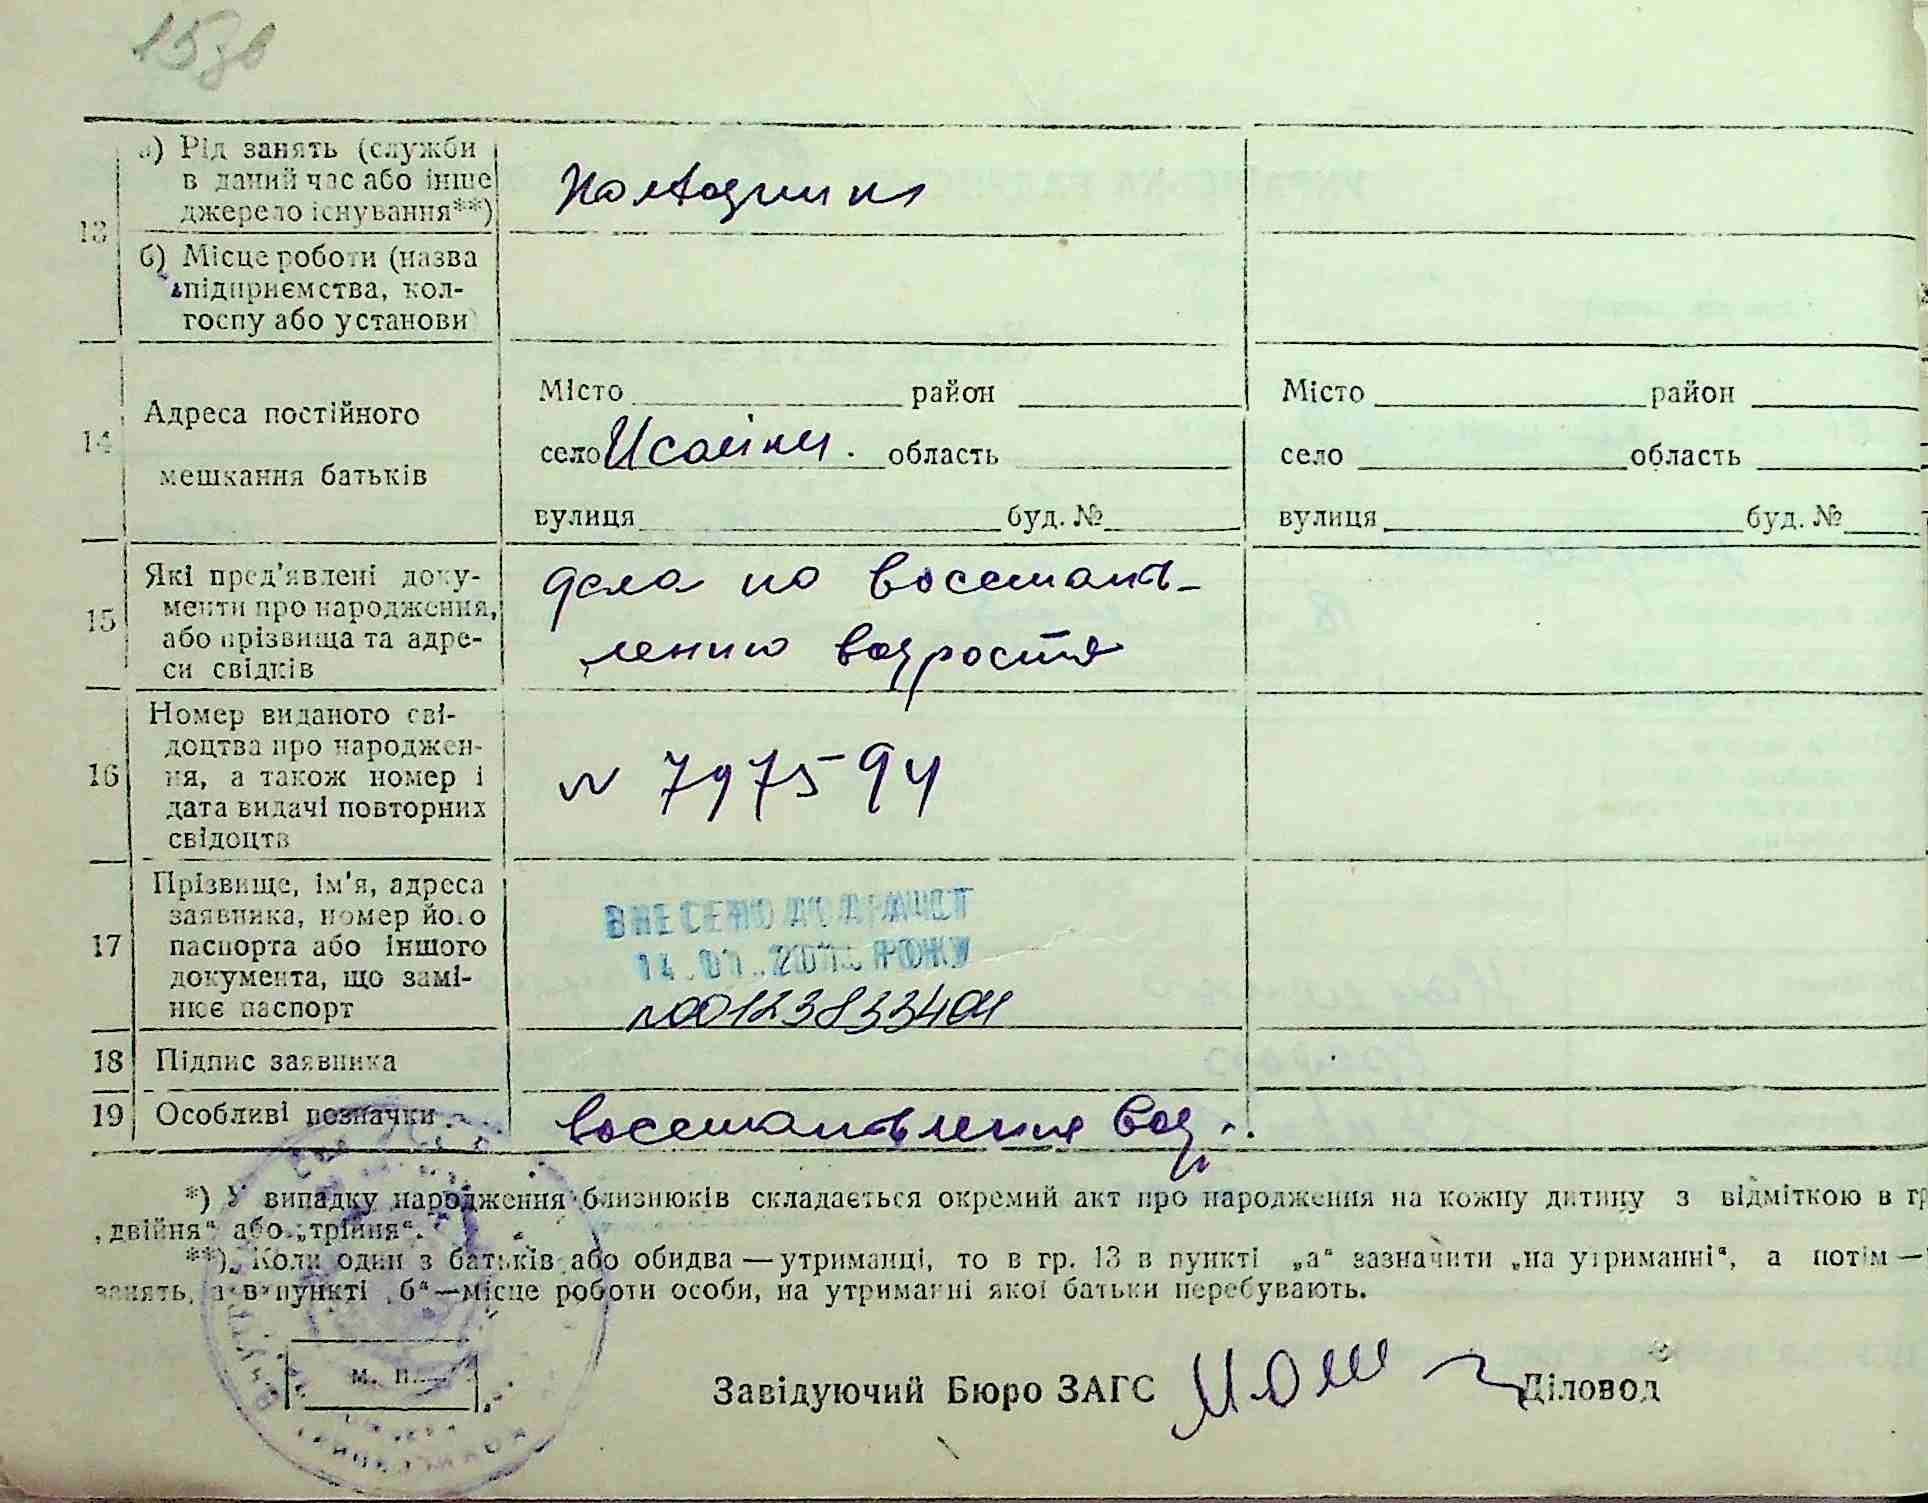 153в
13
а) Рід занять (служби
в даний час або інше
джерело існування**)
колгоспник
б) Місце роботи (назва
підприємства, кол-
госпу або установи
14
Адреса постійного
мешкання батьків
Місто район
село Исайки. область
вулиця буд. №
Місто район
село область
вулиця буд. №
15
Які пред'явлені доку-
менти про народження,
або прізвища та адре-
си свідків
дела по восстанов-
лению возраста
16
Номер виданого сві-
доцтва про народжен-
ня, а також номер і
дата видачі повторних
свідоцтв
N 797594
17
Прізвище, ім'я, адреса
заявника, номер його
паспорта або іншого
документа, що замі-
нює паспорт
ВНЕСЕНО ДО ДРАЦСГ
РОКУ
N00123833404
18 Підпис заявника
19 Особливі позначки
восстановление воз..
*) У випадку народження близнюків складається окремий акт про народження на кожну дитину з відміткою в гр
„двійня“ або „трійня“.
**) Коли один з батьків або обидва — утриманці, то в гр. 13 в пункті „а“ зазначити „на утриманні“, а потім —
занять, а в пункті „б“—місце роботи особи, на утриманні якої батьки перебувають.
М. П.
Завідуючий Бюро ЗАГС Діловод